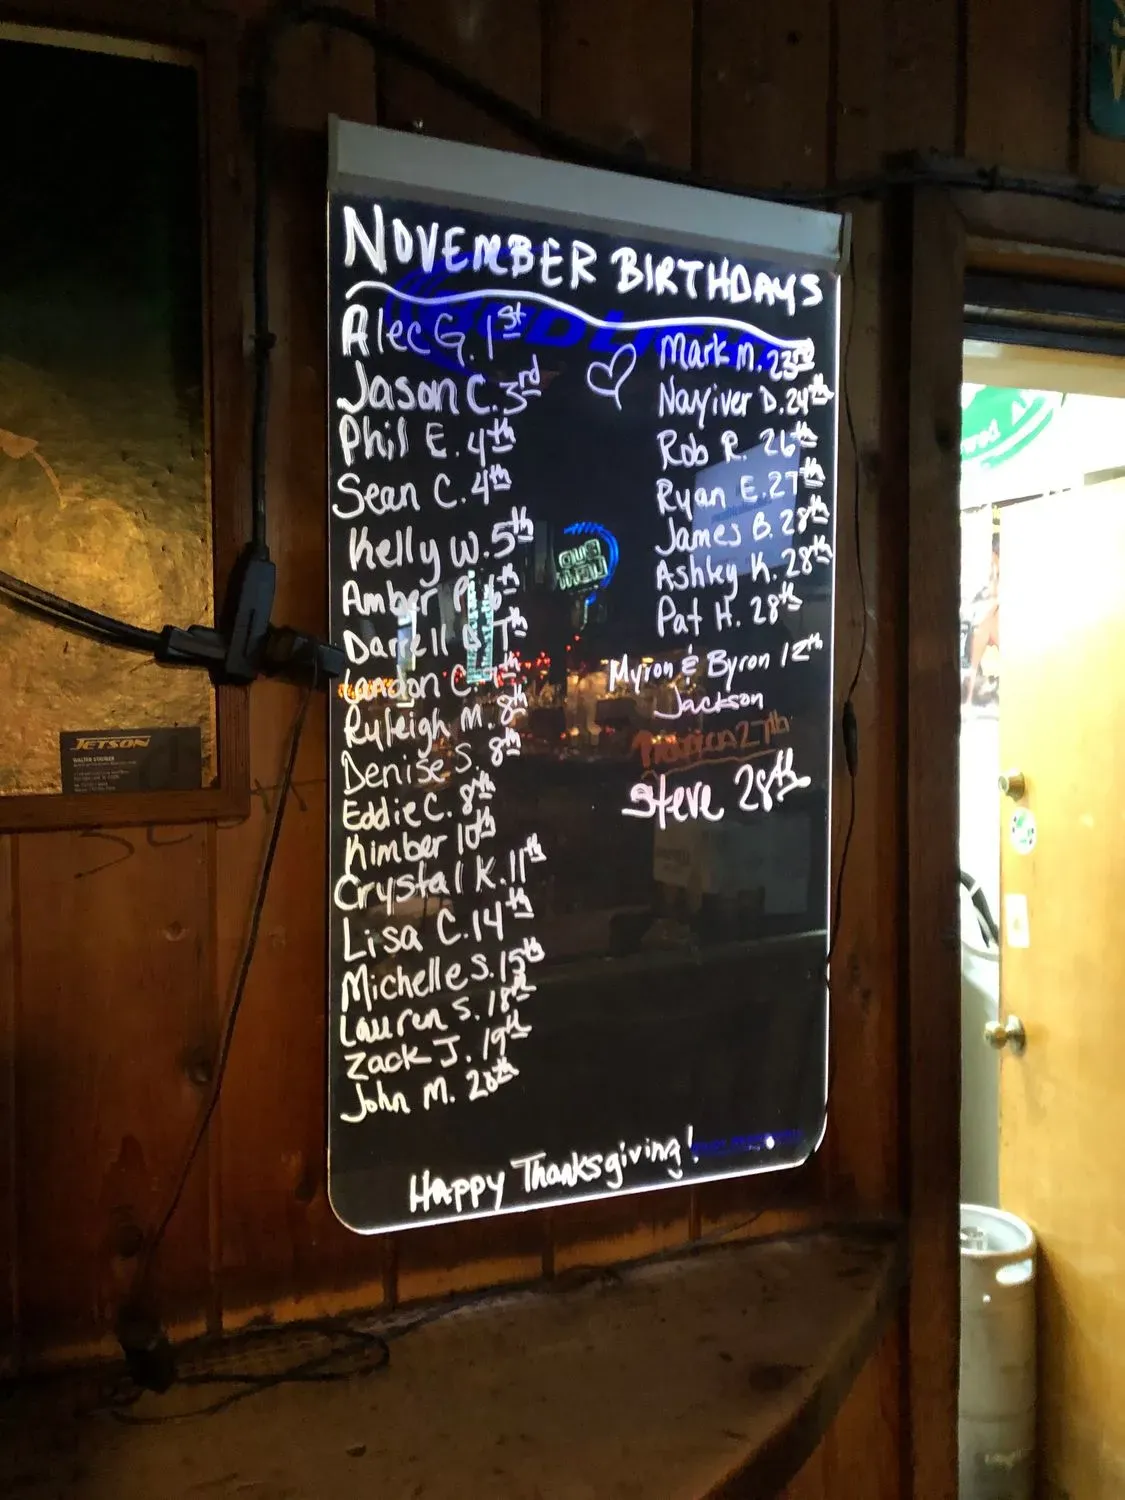 NOVEMBER BIRTHDAYS
Alec G. 1st
Jason C. 3rd
Phil E. 4th
Sean C. 4th
Kelly W. 5th
Amber P. 6th
Darrell 7th
Landon C. 7th
Ryleigh M. 8th
Denise S. 8th
Eddie C. 8th
Kimber 10th
Crystal K. 11th
Lisa C. 14th
Michelle S. 15th
Lauren S. 18th
Zack J. 19th
John M. 20th
Mark M. 23rd
Nayiver D. 24th
Rob R. 26th
Ryan E. 27th
James B. 28th
Ashley K. 28th
Pat H. 28th
Myron & Byron 12th
Jackson
27th
Steve 28th
Happy Thanksgiving!
JETSON